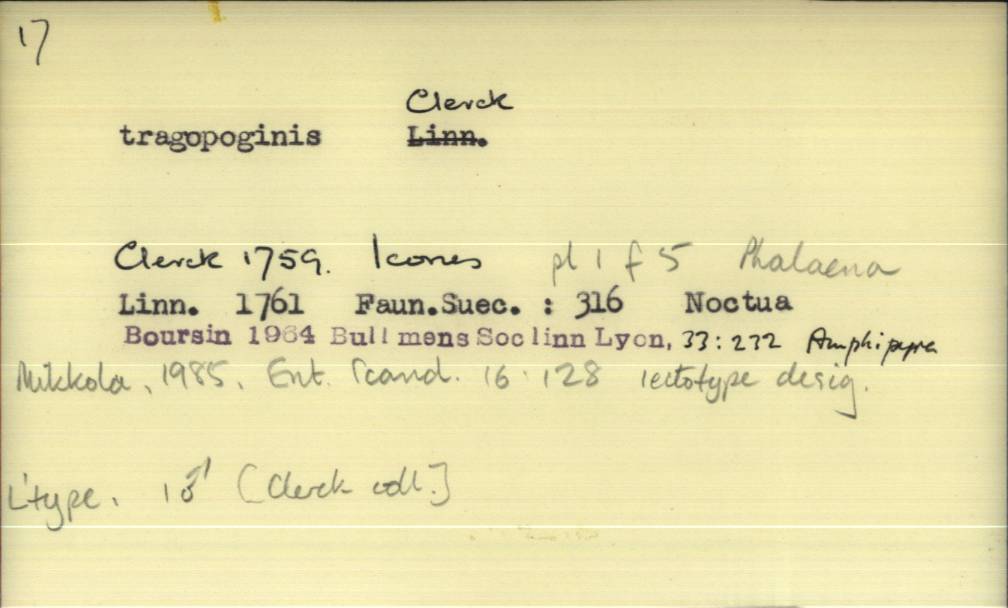 17
Clerck
tragopoginis Linn.
Clerck 1759. Icones pl 1 f 5 Phalaena
Linn. 1761 Faun.Suec. : 316 Noctua
Boursin 1964 Bull mens Soc linn Lyon, 33:232 Amphipyra
Mikkola, 1985, Ent. Scand. 16:128 lectotype desig.
L'type. 1♂ [Clerck coll.]